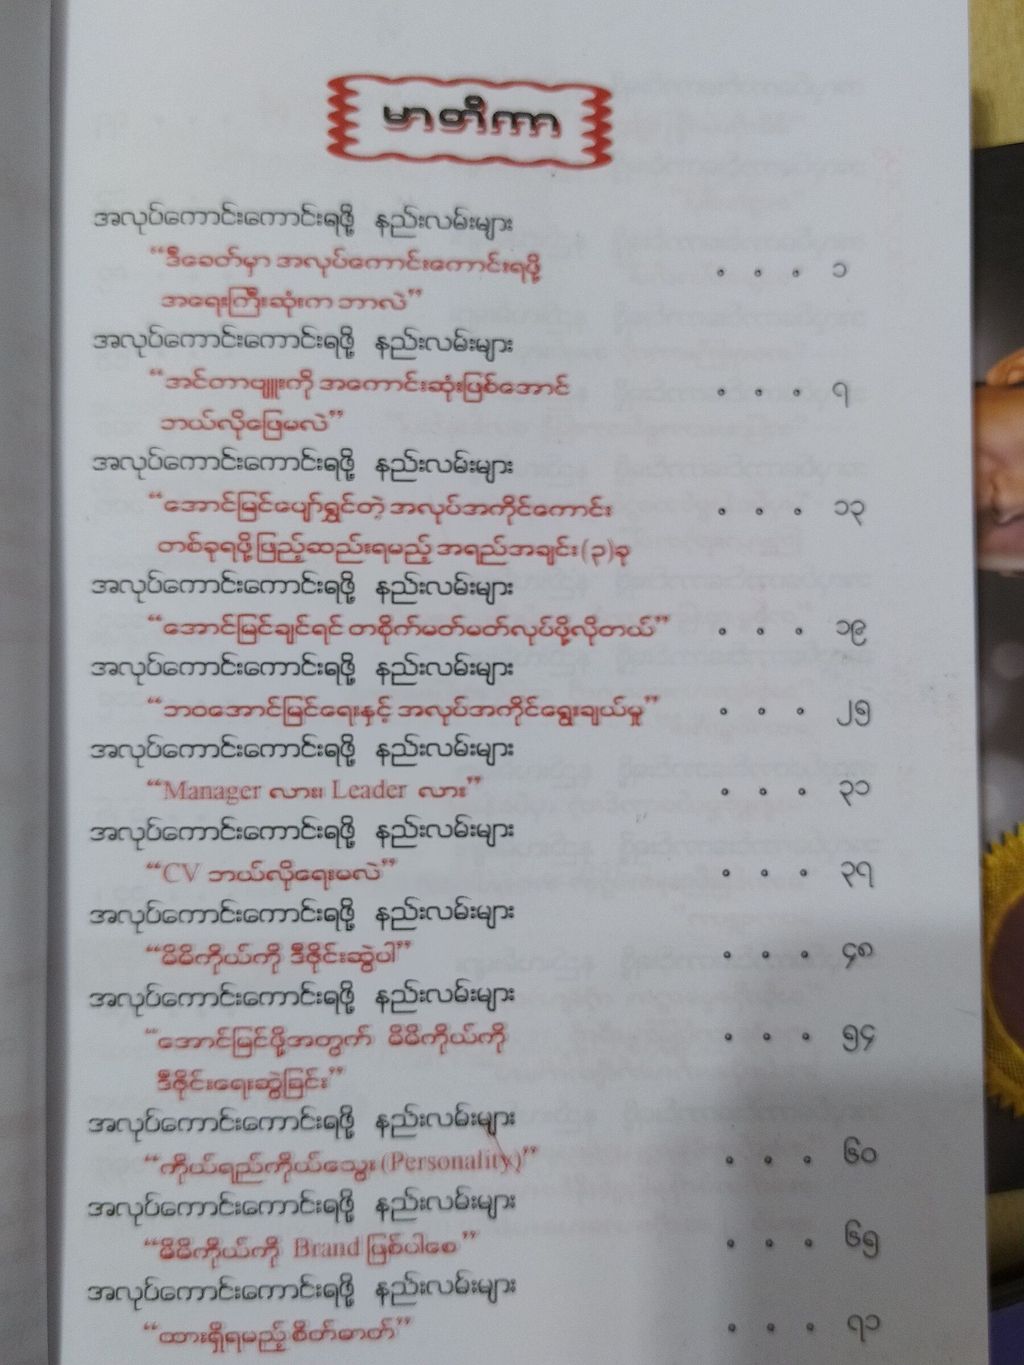 မာတိကာ
အလုပ်ကောင်းကောင်းရဖို့ နည်းလမ်းများ
“ဒီခေတ်မှာ အလုပ်ကောင်းကောင်းရဖို့ • • • ၁
အရေးကြီးဆုံးက ဘာလဲ”
အလုပ်ကောင်းကောင်းရဖို့ နည်းလမ်းများ
“အင်တာဗျူးကို အကောင်းဆုံးဖြစ်အောင် • • • ၇
ဘယ်လိုဖြေမလဲ”
အလုပ်ကောင်းကောင်းရဖို့ နည်းလမ်းများ
“အောင်မြင်ပျော်ရွှင်တဲ့ အလုပ်အကိုင်ကောင်း • • • ၁၃
တစ်ခုရဖို့ ဖြည့်ဆည်းရမည့် အရည်အချင်း (၃) ခု
အလုပ်ကောင်းကောင်းရဖို့ နည်းလမ်းများ
“အောင်မြင်ချင်ရင် တစိုက်မတ်မတ်လုပ်ဖို့လိုတယ်” • • • ၁၉
အလုပ်ကောင်းကောင်းရဖို့ နည်းလမ်းများ
“ဘဝအောင်မြင်ရေးနှင့် အလုပ်အကိုင်ရွေးချယ်မှု” • • • ၂၅
အလုပ်ကောင်းကောင်းရဖို့ နည်းလမ်းများ
“Manager လား၊ Leader လား” • • • ၃၁
အလုပ်ကောင်းကောင်းရဖို့ နည်းလမ်းများ
“CV ဘယ်လိုရေးမလဲ” • • • ၃၇
အလုပ်ကောင်းကောင်းရဖို့ နည်းလမ်းများ
“မိမိကိုယ်ကို ဒီဇိုင်းဆွဲပါ” • • • ၄၈
အလုပ်ကောင်းကောင်းရဖို့ နည်းလမ်းများ
“အောင်မြင်ဖို့အတွက် မိမိကိုယ်ကို • • • ၅၄
ဒီဇိုင်းရေးဆွဲခြင်း”
အလုပ်ကောင်းကောင်းရဖို့ နည်းလမ်းများ
“ကိုယ်ရည်ကိုယ်သွေး (Personality)” • • • ၆၀
အလုပ်ကောင်းကောင်းရဖို့ နည်းလမ်းများ
“မိမိကိုယ်ကို Brand ဖြစ်ပါစေ” • • • ၆၅
အလုပ်ကောင်းကောင်းရဖို့ နည်းလမ်းများ
“ထားရှိရမည့် စိတ်ဓာတ်” • • • ၇၁